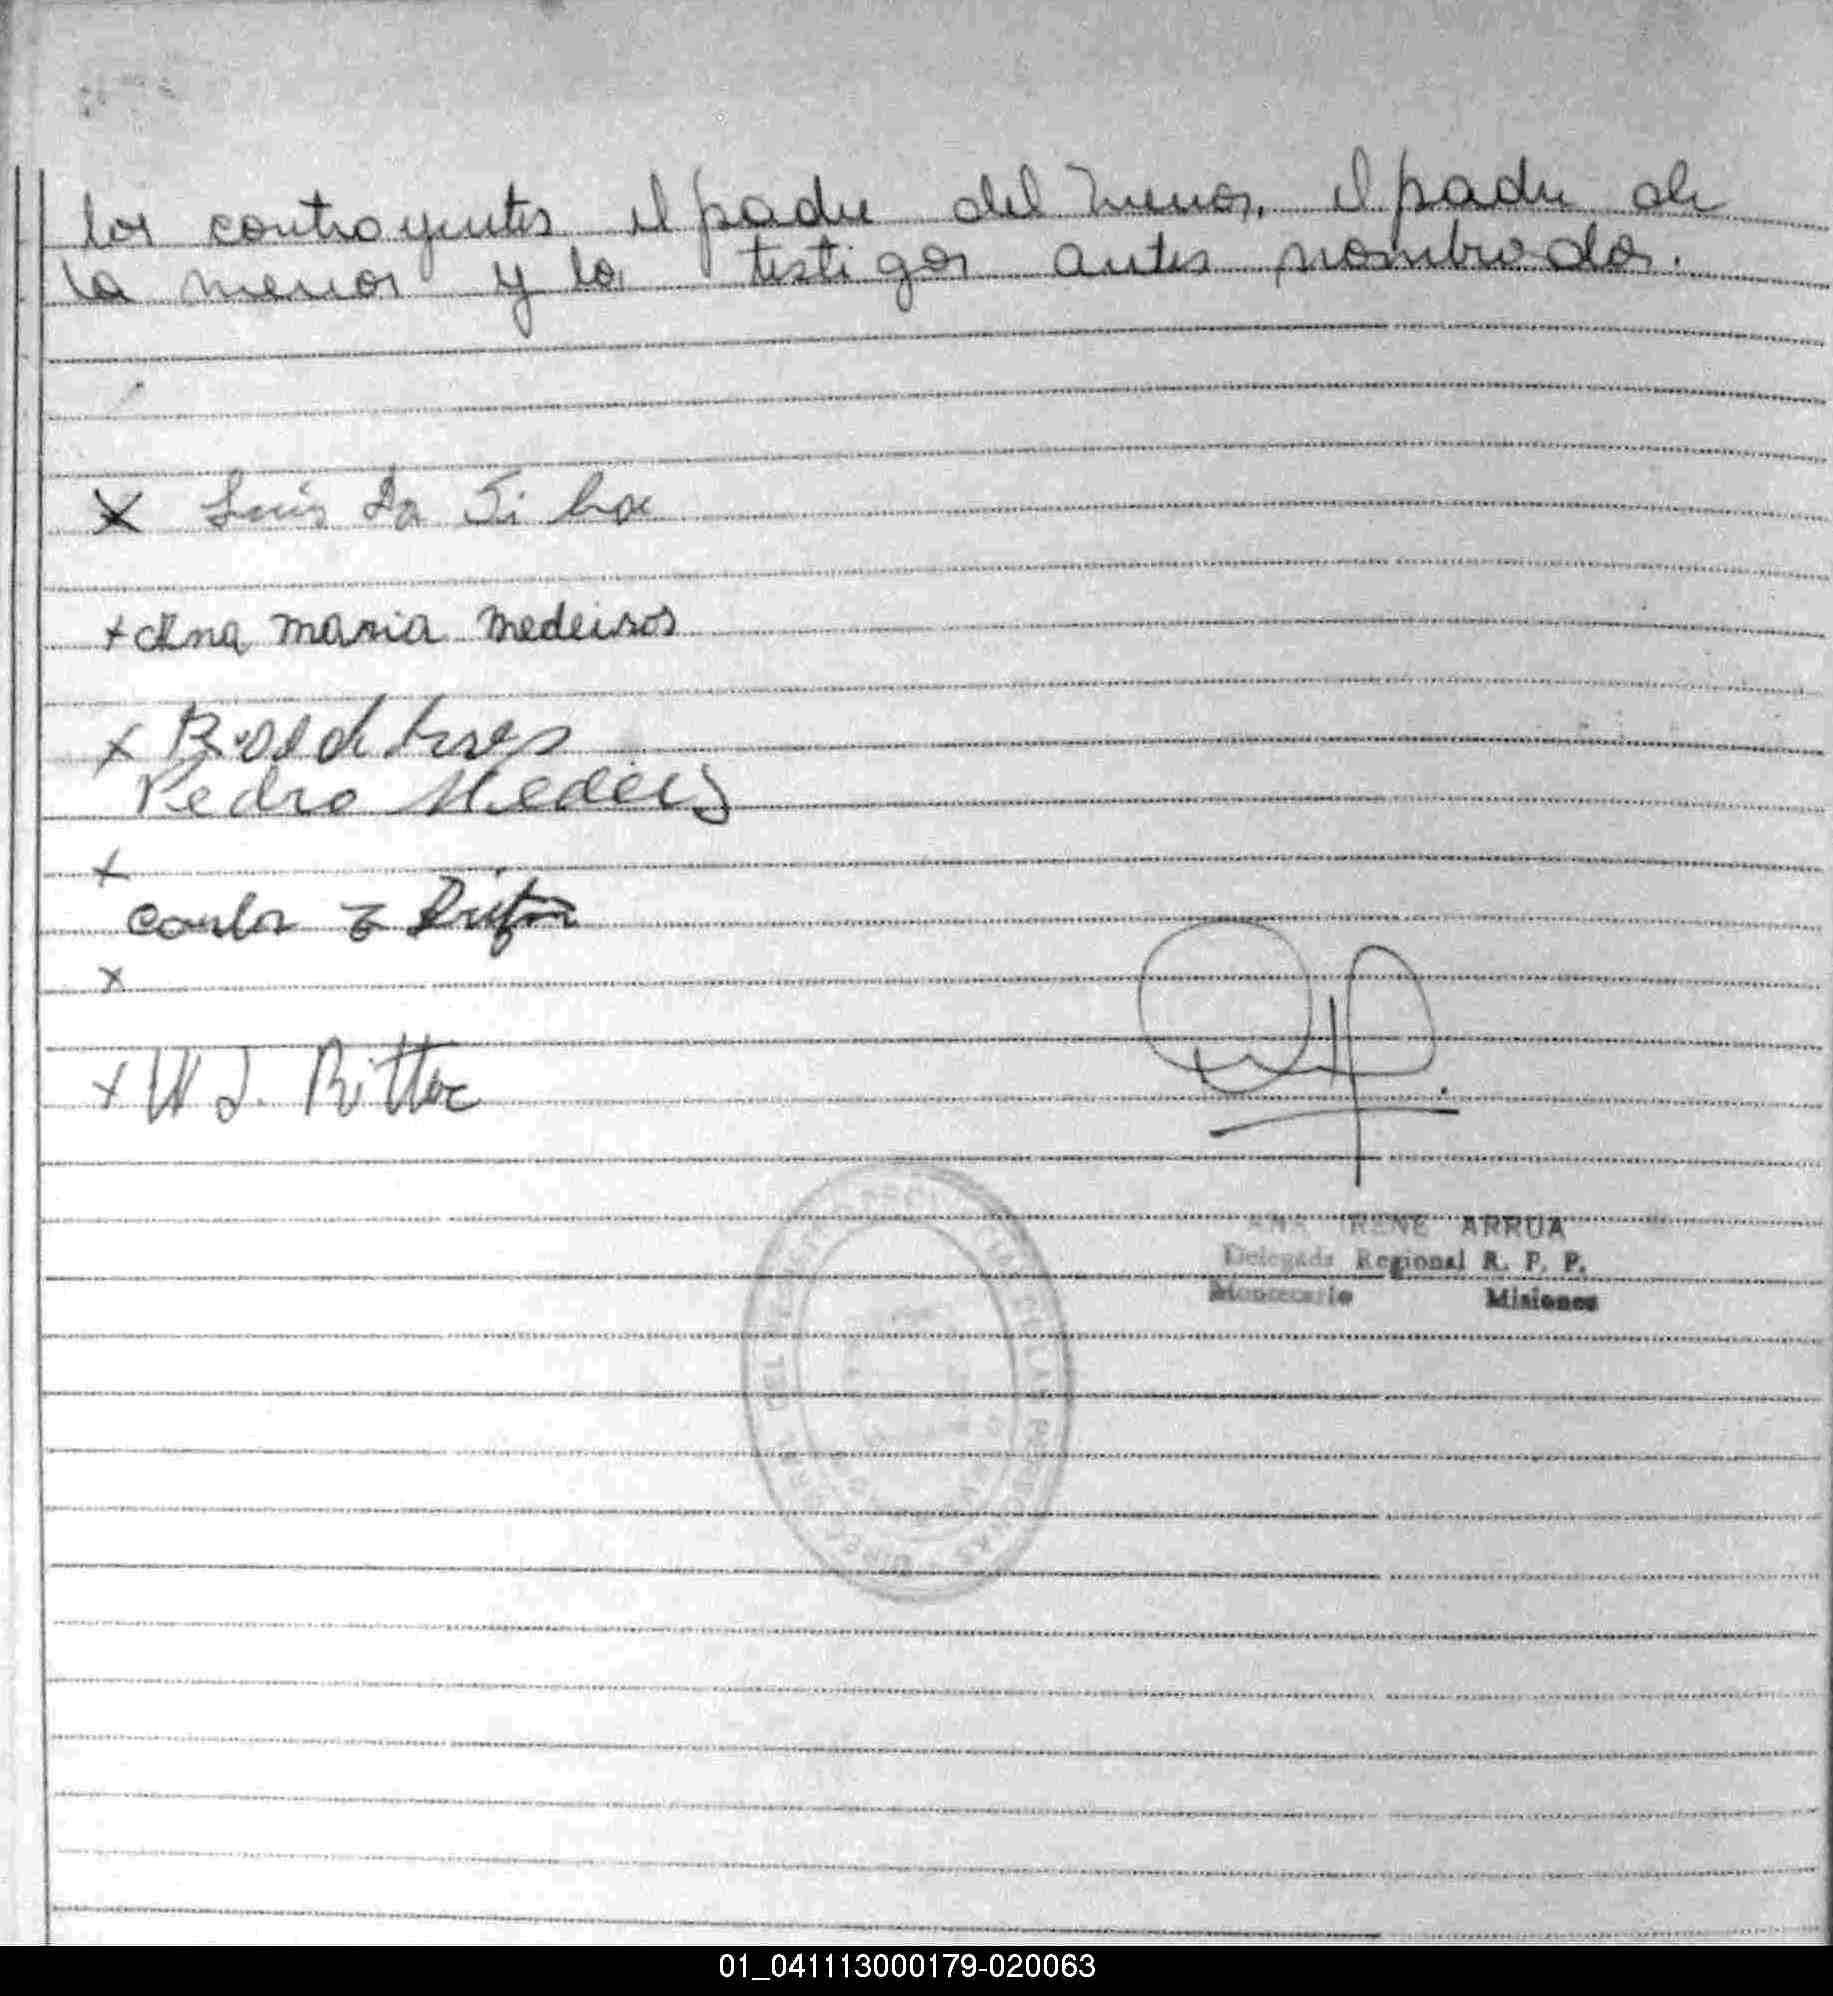 los contrayentes el padre del menor, el padre de
la menor y los testigos antes nombrados.
X Luis Da Silva
+ Ana maria medeiros
x
Pedro Medeis
x
Carlos
x
x W J. Ritter
ANA IRENE ARRUA
Delegada Regional R. P. P.
Montecarlo Misiones
01_041113000179-020063